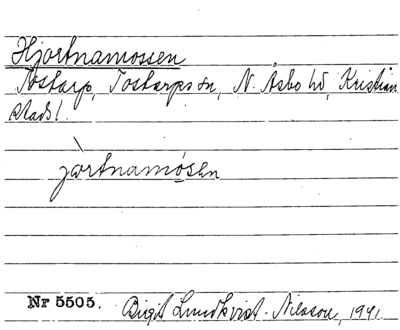 Hjortnamossen
Tostarp, Tostarps sn, N. Åsbo hd, Kristian
stads l.
jòrtnamósen
Nr 5505. Birgit Lundkvist-Nilsson, 1941.